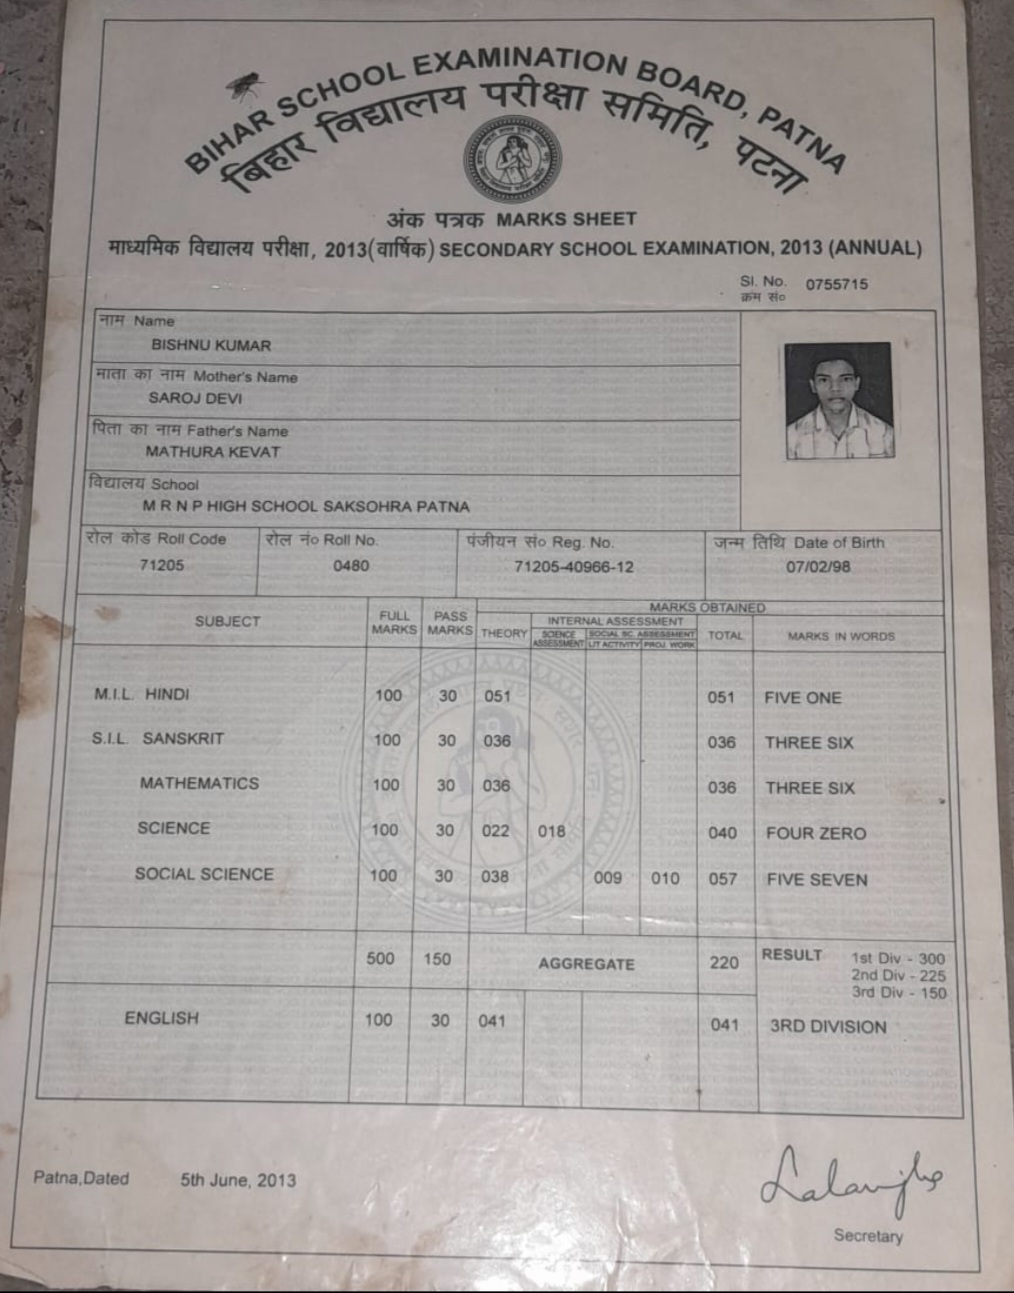 BIHAR SCHOOL EXAMINATION BOARD, PATNA
बिहार विद्यालय परीक्षा समिति, पटना
अंक पत्रक MARKS SHEET
माध्यमिक विद्यालय परीक्षा, 2013(वार्षिक) SECONDARY SCHOOL EXAMINATION, 2013 (ANNUAL)
Sl. No. 0755715
क्रम सं०
नाम Name
BISHNU KUMAR
माता का नाम Mother's Name
SAROJ DEVI
पिता का नाम Father's Name
MATHURA KEVAT
विद्यालय School
M R N P HIGH SCHOOL SAKSOHRA PATNA
रोल कोड Roll Code रोल नं० Roll No. पंजीयन सं० Reg. No. जन्म तिथि Date of Birth
71205 0480 71205-40966-12 07/02/98
SUBJECT FULL MARKS PASS MARKS MARKS OBTAINED
THEORY INTERNAL ASSESSMENT TOTAL MARKS IN WORDS
SCIENCE ASSESSMENT SOCIAL SC. ASSESSMENT
LIT ACTIVITY PROJ. WORK
M.I.L. HINDI 100 30 051 051 FIVE ONE
S.I.L. SANSKRIT 100 30 036 036 THREE SIX
MATHEMATICS 100 30 036 036 THREE SIX
SCIENCE 100 30 022 018 040 FOUR ZERO
SOCIAL SCIENCE 100 30 038 009 010 057 FIVE SEVEN
500 150 AGGREGATE 220 RESULT 1st Div - 300
2nd Div - 225
3rd Div - 150
ENGLISH 100 30 041 041 3RD DIVISION
Patna,Dated 5th June, 2013
Secretary